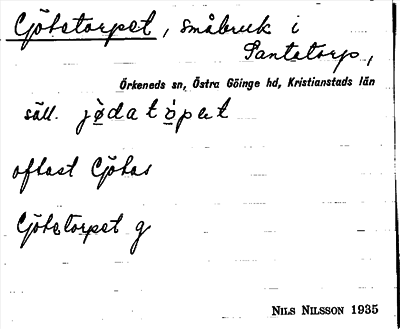 Götetorpet, småbruk i
Santatorp,
Örkeneds sn, Östra Göinge hd, Kristianstads län
säll. jödatòpet
oftast Götas
Götetorpet g
NILS NILSSON 1935